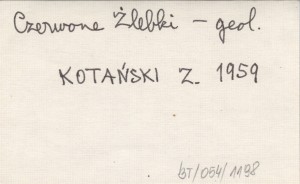 Czerwone Żlebki – geol.
KOTAŃSKI Z. 1959
BT/054/1198